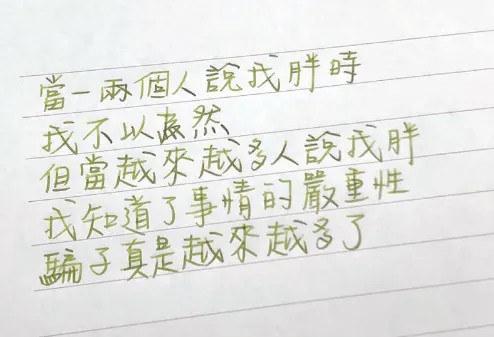 當一兩個人說我胖時
我不以為然
但當越來越多人說我胖
我知道了事情的嚴重性
騙子真是越來越多了